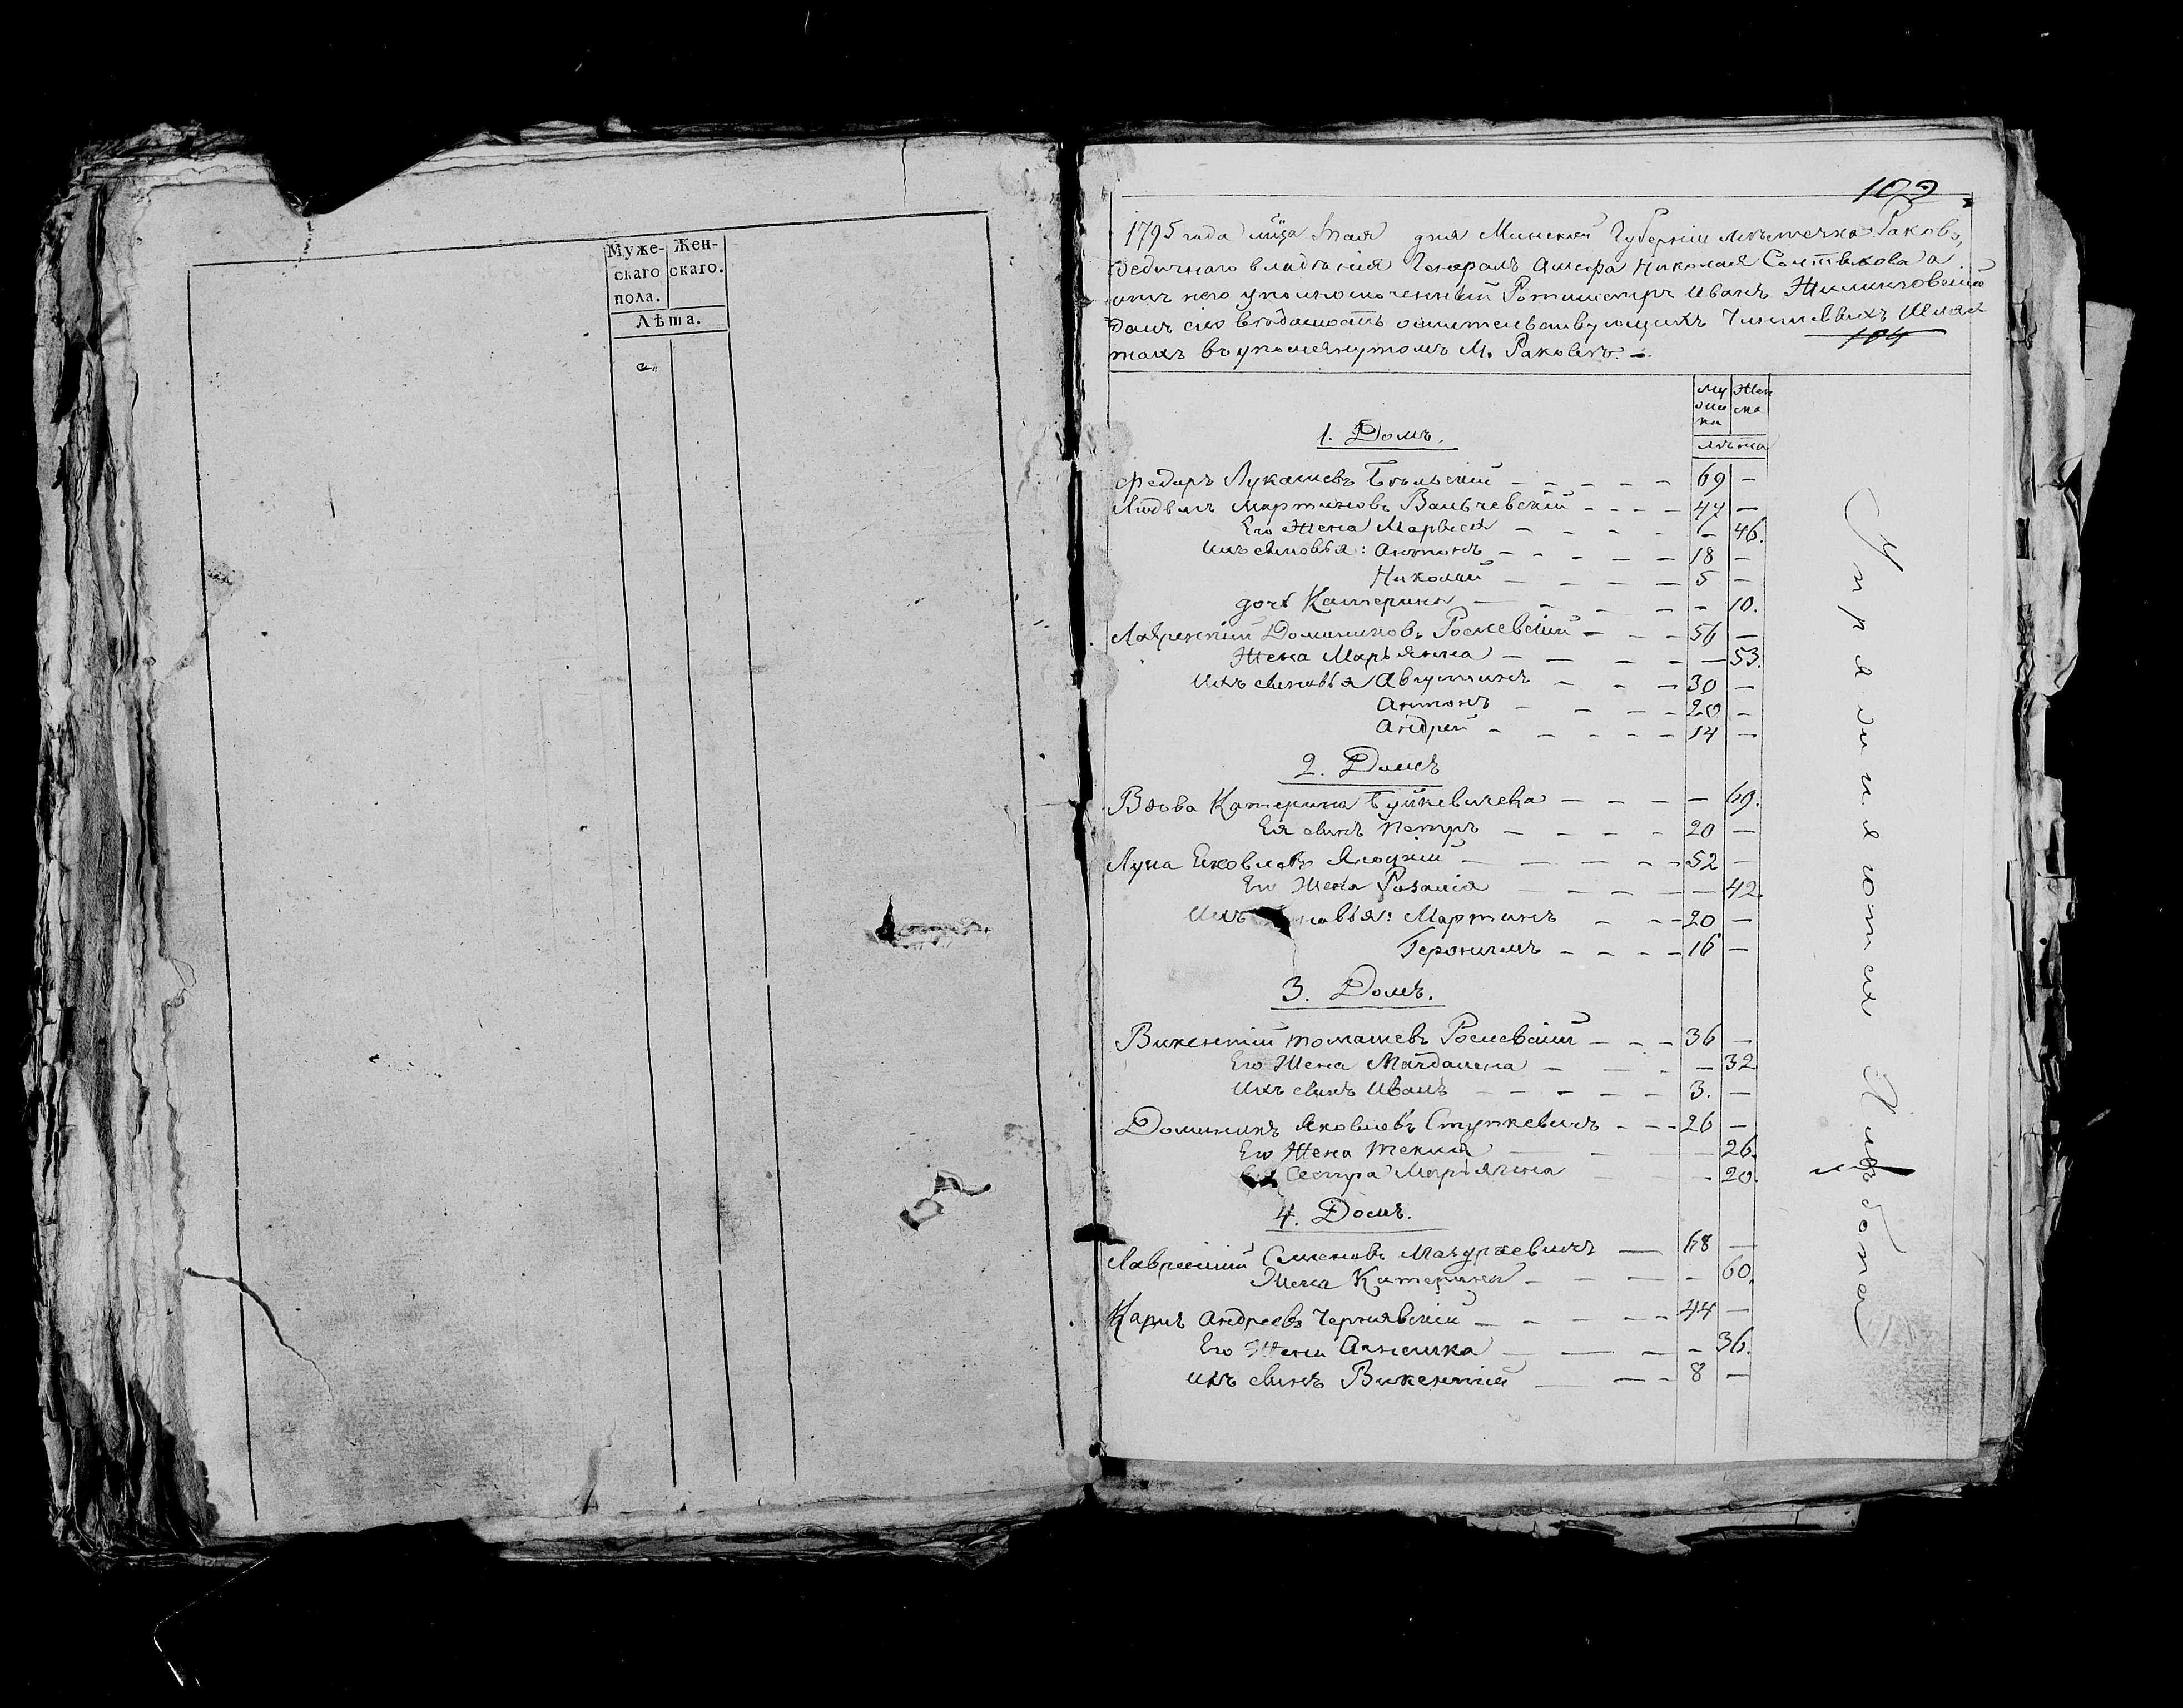 Муже- Жен-
скаго скаго.
пола.
Лѣта.
102
1795 года мца маия дня Минской Губернии мѣстечка Раковъ,
ведичнаго владѣния Генералъ Аншефа Николая Солтыкова а
отъ него уполномоченный Ротмистръ Иванъ
далъ сию вѣдомость о жительствующихъ Чиншевыхъ Шлях
тахъ въ упомянутомъ М. Раковѣ. –
104
Му Жен
жес ска
ка
лѣта
1. Домъ.
Федоръ Лукашевъ Бѣльский – – – – – 69 –
Людвигъ Мартиновъ Вальчевский – – – – 47 –
Его Жена Марыся – – – – – 46.
Ихъ сыновья: Антонъ – – – – – 18 –
Николай – – – – 5 –
дочь Катерина – – – – – 10.
Лаврентий Доминиковъ Росиевский – – – 56 –
Жена Марьянна – – – – – 53.
Ихъ сыновья Августинъ – – – 30 –
Антонъ – – – – 20 –
Андрей – – – – – 14 –
2. Домъ
Вдова Катерина Буйкевичева – – – – 69.
Ея сынъ Петръ – – – – 20 –
Лука Яковлевъ – – – – – 52 –
Его Жена Розалия – – – – – 42.
Ихъ новья: Мартинъ – – – 20 –
Геронимъ – – – – 16 –
3. Домъ.
Викентий Томашевъ Росиевский – – – 36 –
Его Жена Магдалена – – – – 32
Ихъ сынъ Иванъ – – – – – 3. –
Доминикъ Яковлевъ Стуткевичъ – – – 26 –
Его Жена Текля – – – 26.
Сестра Марьянна – – 20.
4. Домъ.
Лаврентий Семеновъ Мазуркевичъ – 68 –
Жена Катерина – – – – – 60.
Карлъ Андреевъ Чернявский – – – – – 44 –
Его Жена Агнешка – – – – 36.
Ихъ сынъ Викентий – – – 8 –
Упражняются Хлѣбопа